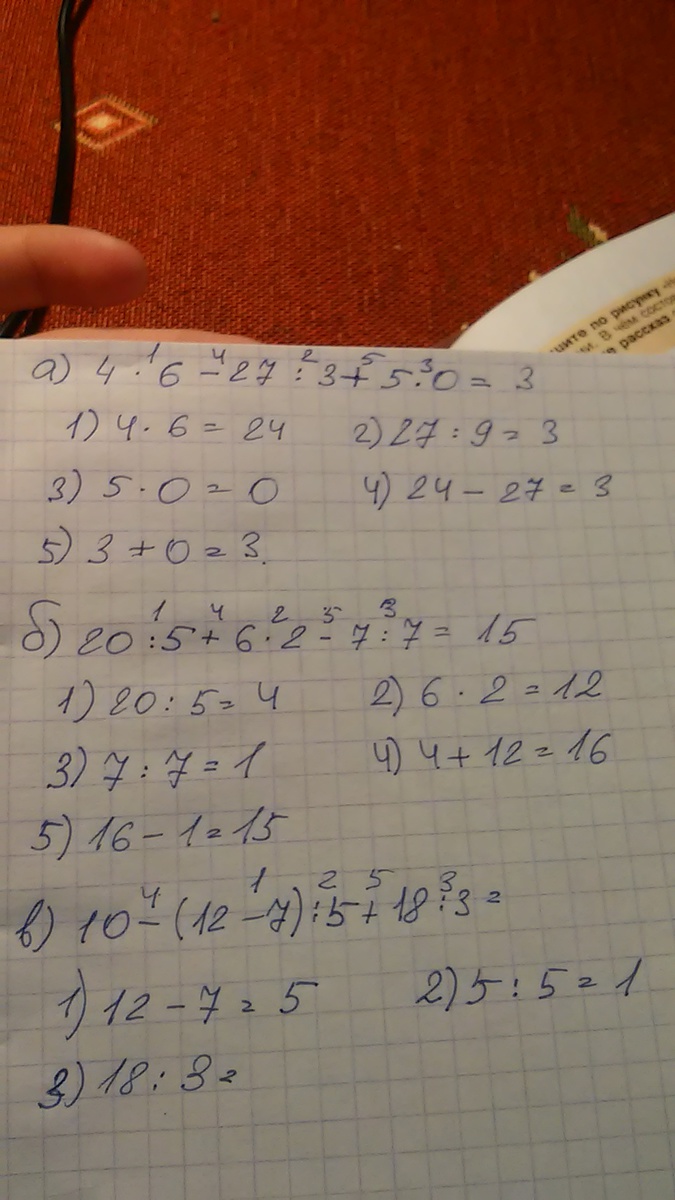 шите по рисунку
В чём состо
рассказ
а) 4 · 6 - 27 : 3 + 5 · 0 = 3
1 4 2 5 3
1) 4 · 6 = 24 2) 27 : 9 = 3
3) 5 · 0 = 0 4) 24 - 27 = 3
5) 3 + 0 = 3.
1 4 2 5 3
б) 20 : 5 + 6 · 2 - 7 : 7 = 15
1) 20 : 5 = 4 2) 6 · 2 = 12
3) 7 : 7 = 1 4) 4 + 12 = 16
5) 16 - 1 = 15
4 1 2 5 3
в) 10 - (12 - 7) : 5 + 18 : 3 =
1) 12 - 7 = 5 2) 5 : 5 = 1
3) 18 : 3 =